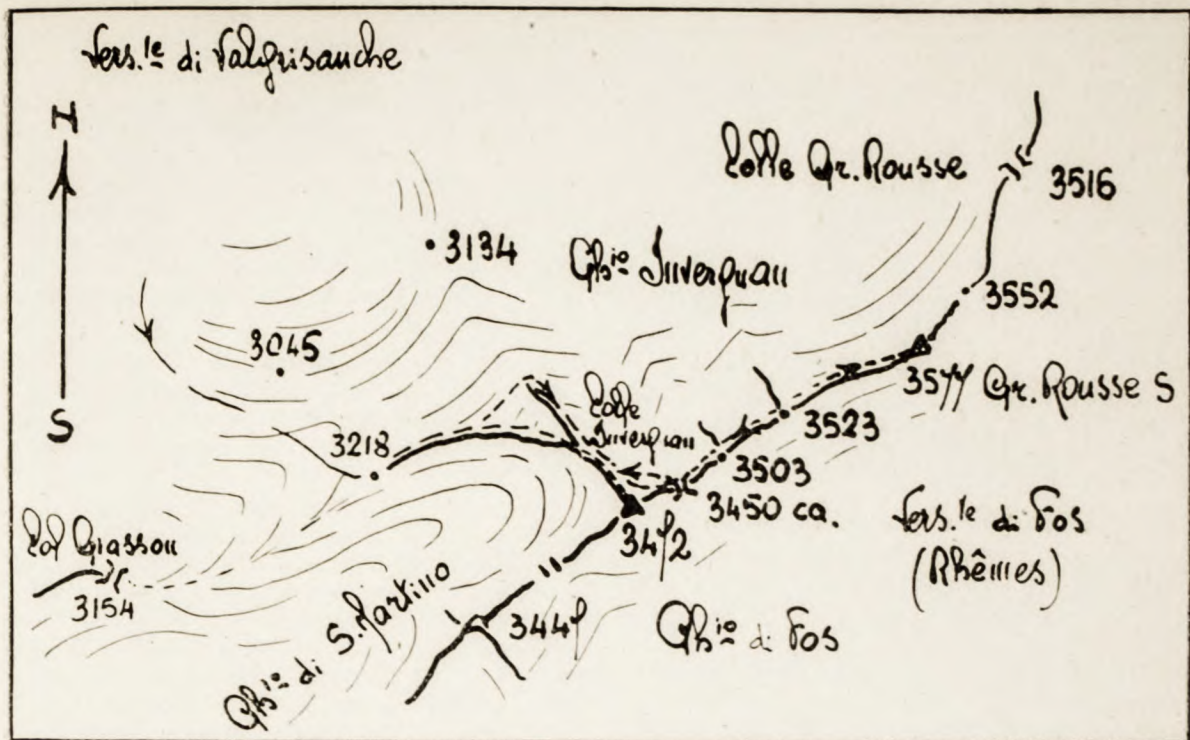 Vers.te di Valgrisanche
N
Colle Gr. Rousse
3516
3134
Gh.io Invergnan
3552
3045
3577 Gr. Rousse S
S
Colle
Invergnan
3523
3218
3503
3450 ca.
3472
Vers.te di Fos
(Rhêmes)
Col Giasson
3154
Gh.io di S. Martino
3447
Gh.io di Fos